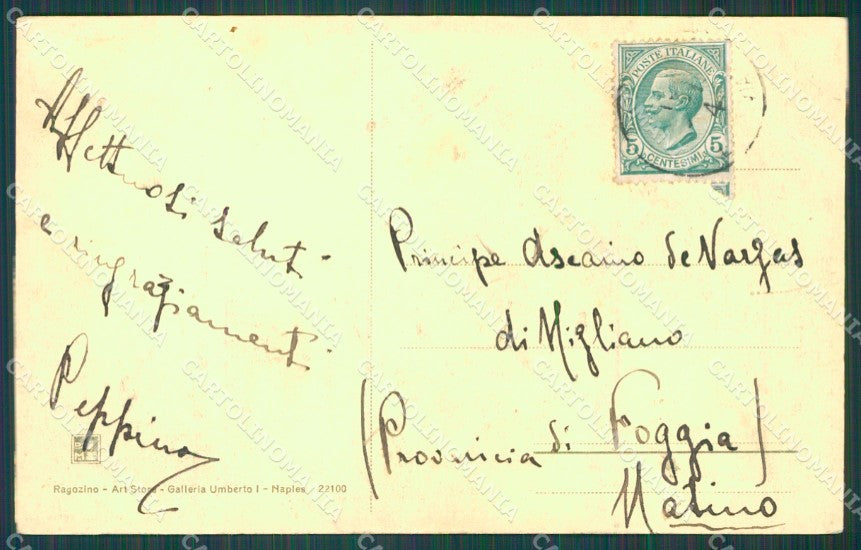 Affettuosi saluti
e ringraziamenti
Peppino
Ragozino - Art Store - Galleria Umberto I - Naples 22100
POSTE ITALIANE
5 5
CENTESIMI
Principe Ascanio de Vargas
di Migliano
(Provincia di Foggia)
Matino
CARTOLINOMANIA